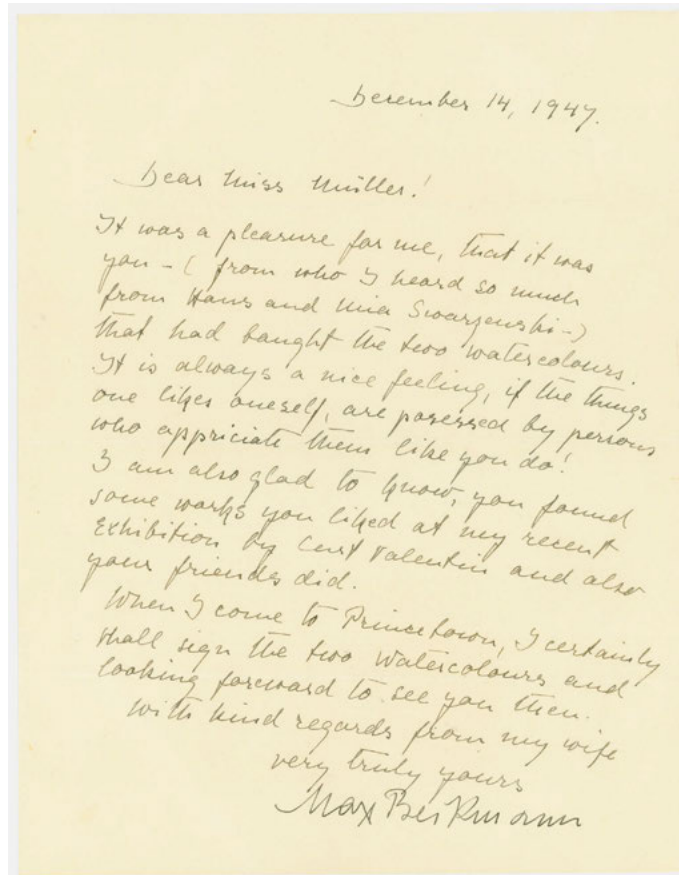 December 14, 1947.
Dear Miss Müller!
It was a pleasure for me, that it was
you – ( from who I heard so much
from Hans and Mia Swarzenski –)
that had baught the two watercolours.
It is always a nice feeling, if the things
one likes oneself, are posessed by persons
who appriciate them like you do!
I am also glad to know, you found
some works you liked at my recent
Exhibition by Curt Valentin and also
your friendes did.
When I come to Princetown, I certainly
shall sign the two Watercolours and
looking forward to see you then.
with kind regards from my wife
very truly yours
Max Beckmann